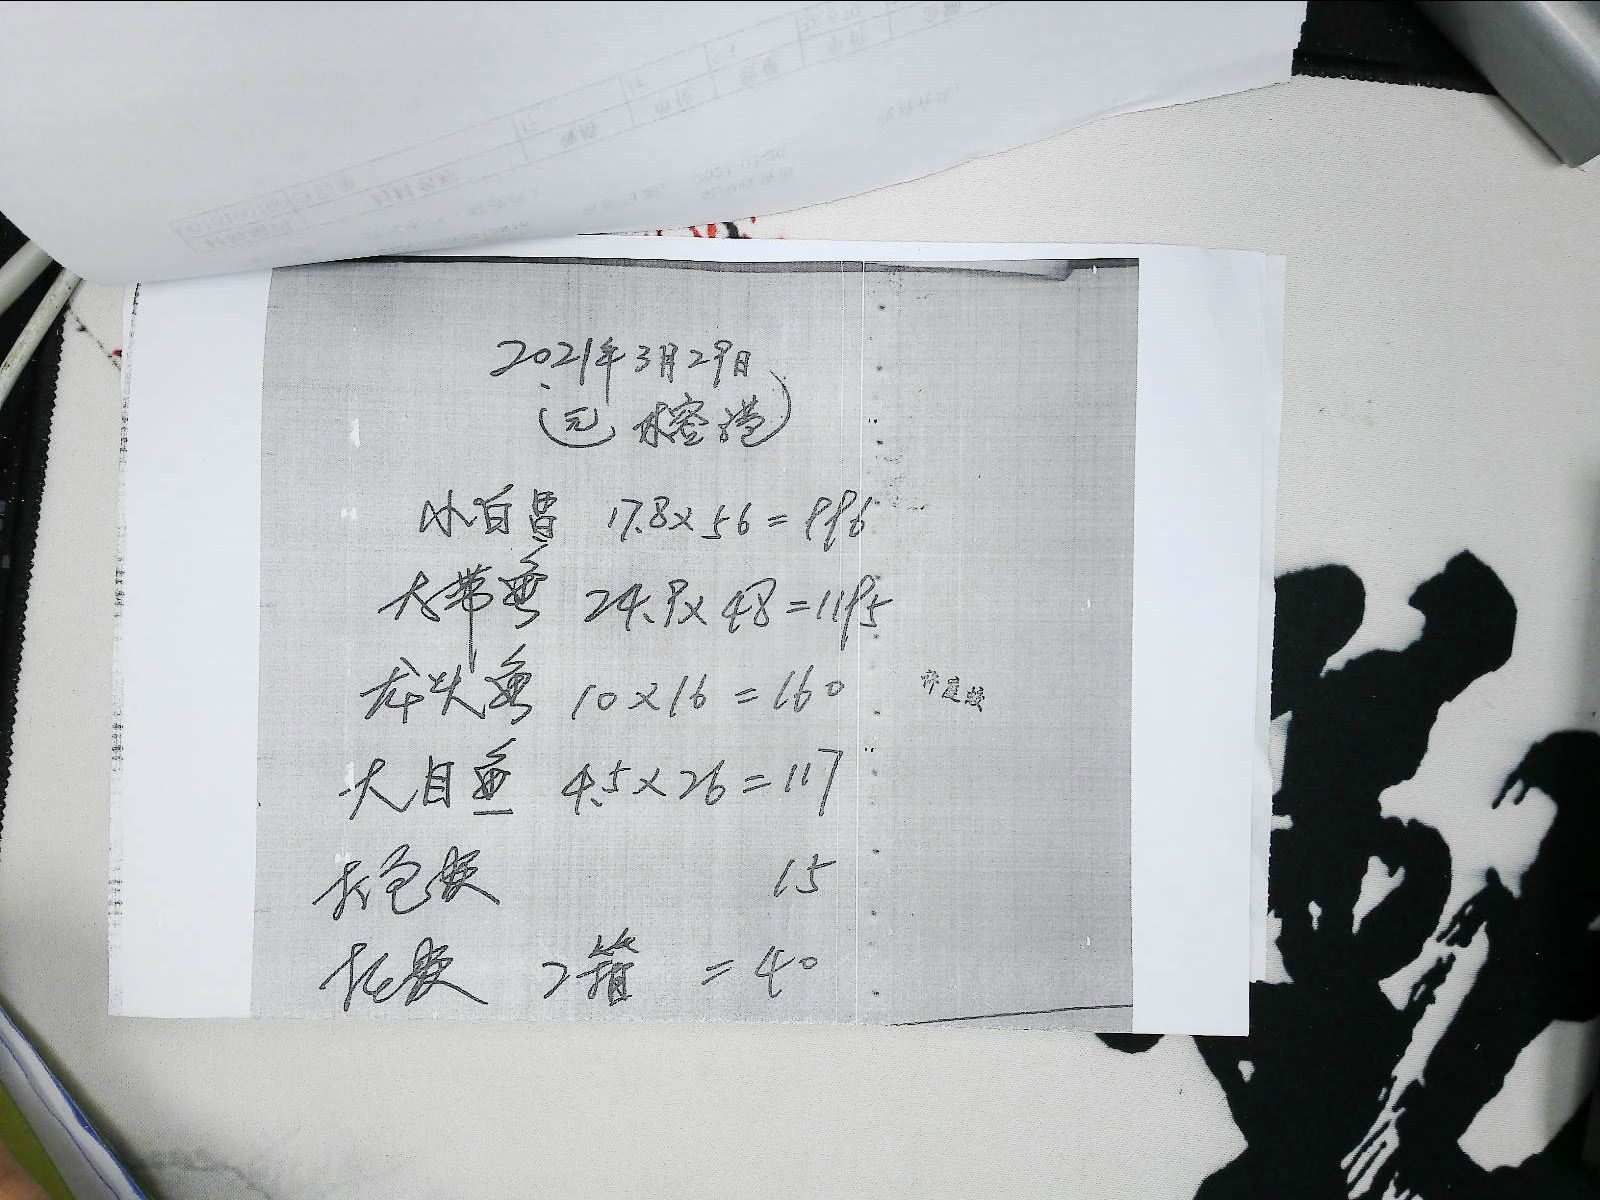 2021年3月29日
(元 水容港)
小白昌 17.8×56=996
大带鱼 24.9×48=1195
龙头鱼 10×16=160
许庭姣
大目鱼 4.5×26=117
打包费 15
托费 2箱 =40